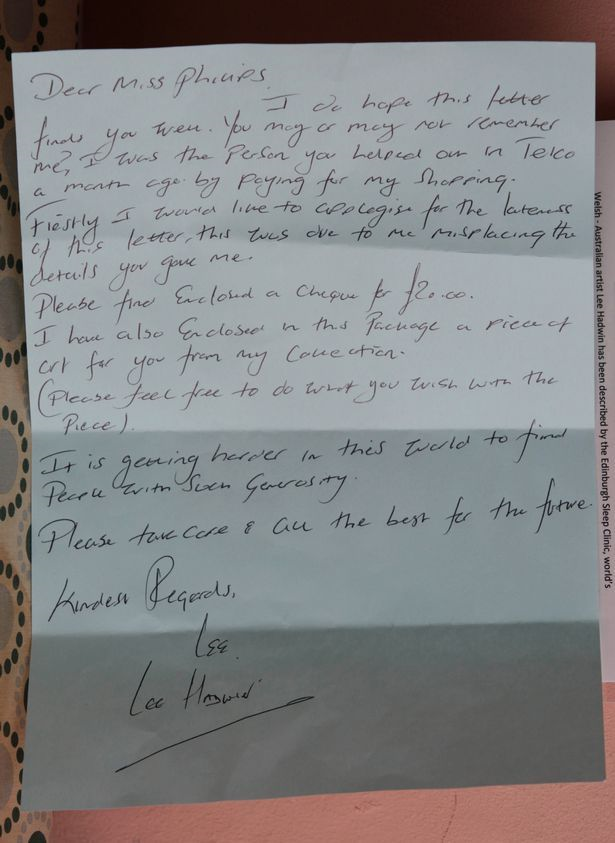 Dear Miss Phillips
I do hope this letter
finds you well. You may or may not remember
me, I was the Person you helped out in Tesco
a month ago by paying for my Shopping.
Firstly I would like to apologise for the lateness
of this letter, this was due to me misplacing the
details you gave me.
Please find Enclosed a cheque for £20.00.
I have also Enclosed in this Package a piece of
art for you from my Collection.
(Please feel free to do what you wish with the
Piece).
It is getting harder in this world to find
People with Such Generosity.
Please take care & all the best for the future.
Kindest Regards,
Lee
Lee Hadwin
Welsh - Australian artist Lee Hadwin has been described by the Edinburgh Sleep Clinic, world's